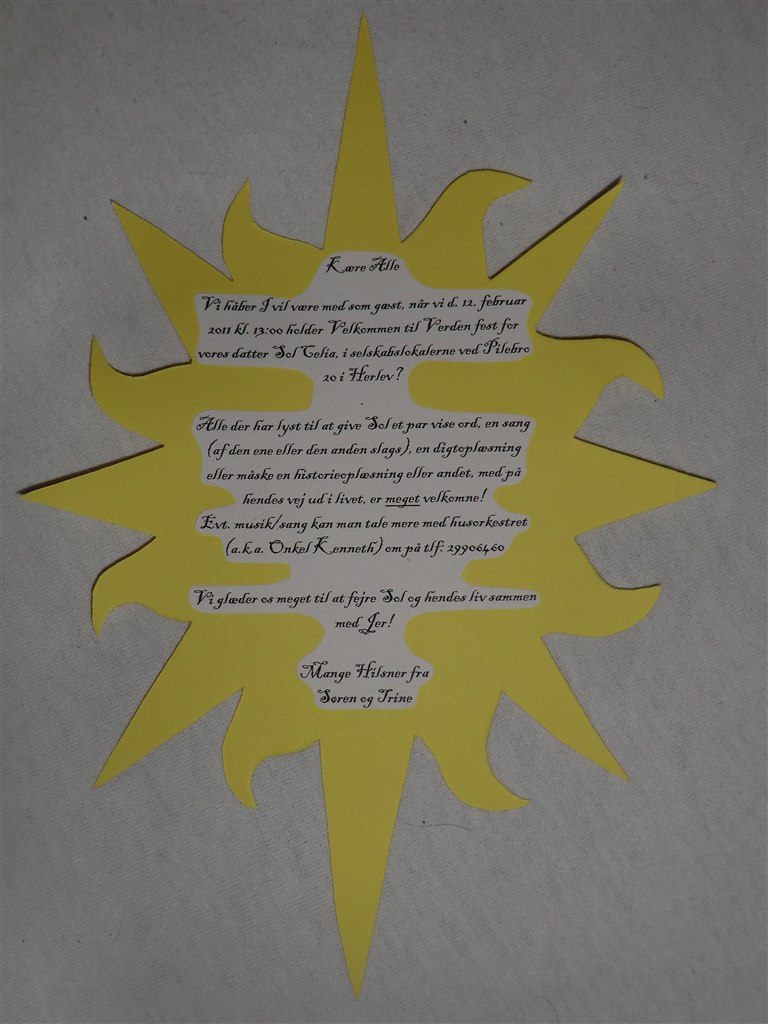 Kære Alle
Vi håber I vil være med som gæst, når vi d. 12. februar
2011 kl. 13:00 holder Velkommen til Verden fest for
vores datter Sol Celia, i selskabslokalerne ved Pilebro
20 i Herlev?
Alle der har lyst til at give Sol et par vise ord, en sang
(af den ene eller den anden slags), en digtoplæsning
eller måske en historieoplæsning eller andet, med på
hendes vej ud i livet, er meget velkomne!
Evt. musik/sang kan man tale mere med husorkestret
(a.k.a. Onkel Kenneth) om på tlf: 29906460
Vi glæder os meget til at fejre Sol og hendes liv sammen
med Jer!
Mange Hilsner fra
Søren og Trine